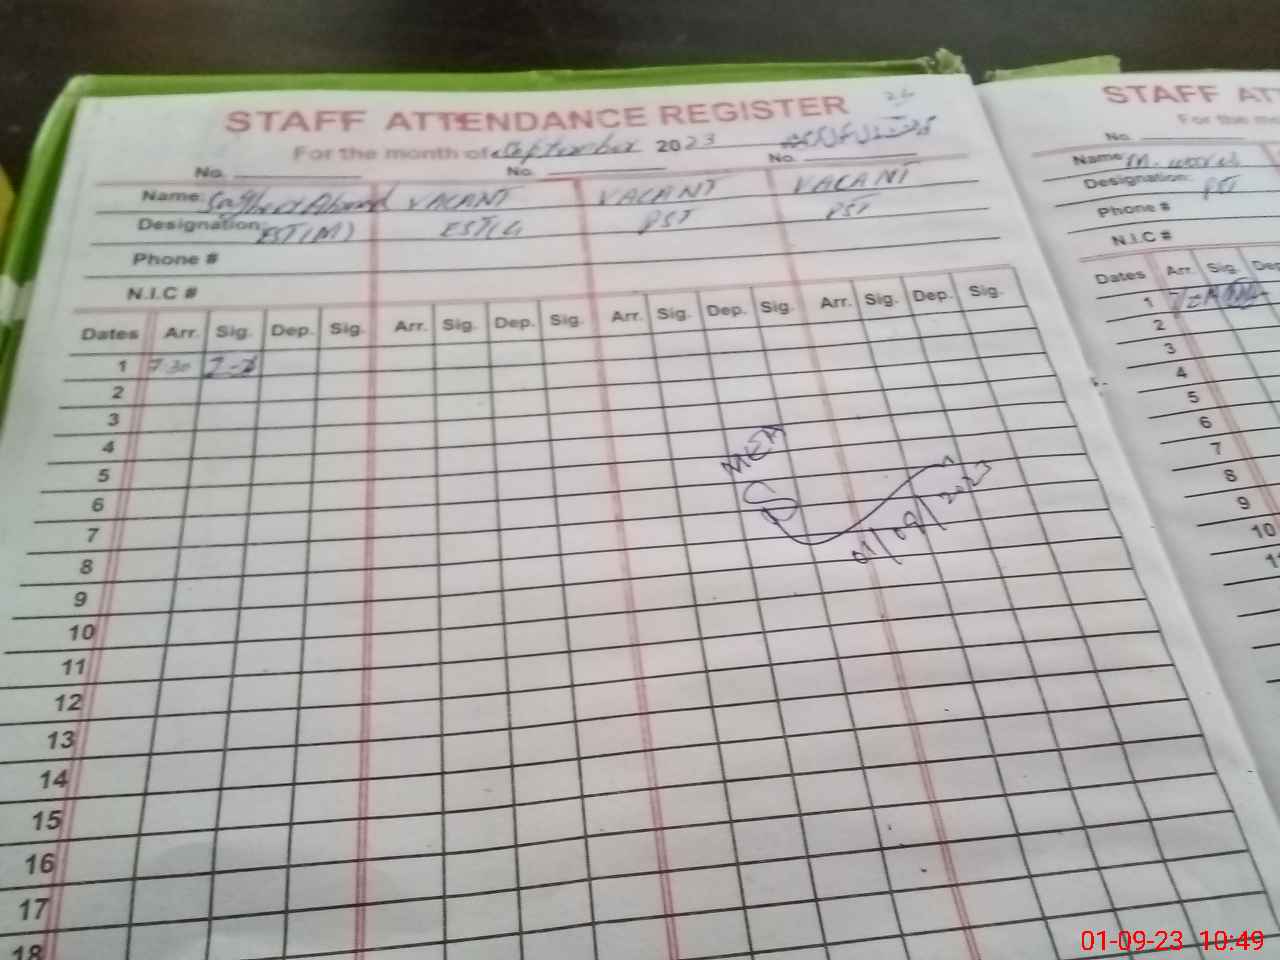 STAFF ATTENDANCE REGISTER
For the month of September 2023
No. No. No.
Name: Ahmed VACANT VACANT VACANT
Designation: EST(M) EST(G PST PST
Phone #
N.I.C #
Dates Arr. Sig. Dep. Sig. Arr. Sig. Dep. Sig. Arr. Sig. Dep. Sig. Arr. Sig. Dep. Sig.
1 7:30
2
3
4
5
6
7
8
9
10
11
12
13
14
15
16
17
18
MEA
01/09/2023
STAFF ATT
For the mo
No.
Name: M.
Designation: PST
Phone #
N.I.C #
Dates Arr. Sig. Dep
1
2
3
4
5
6
7
8
9
10
11
01-09-23 10:49